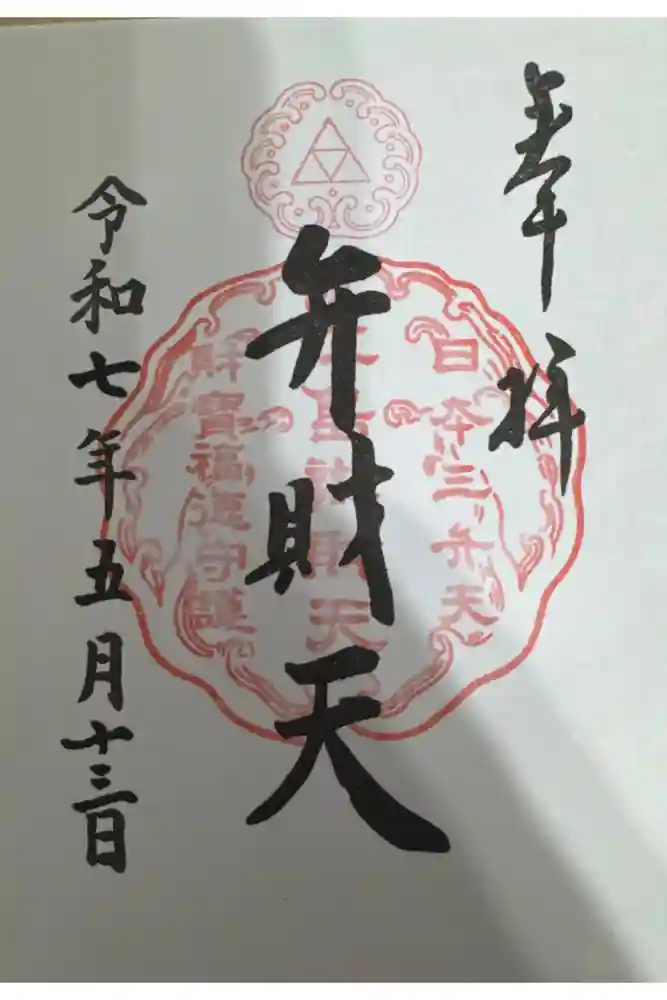 奉拝
日本三弁天
弁財天
財寶福徳守護
令和七年五月十三日